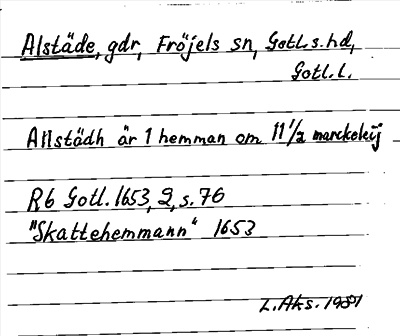 Alstäde, gdr, Fröjels sn, Gotl. s. hd,
Gotl. L.
Allstädh är 1 hemman om 11 1/2 marckeleij
Rb Gotl. 1653, 2, s. 76
"Skattehemmann" 1653
L. Aks. 1981